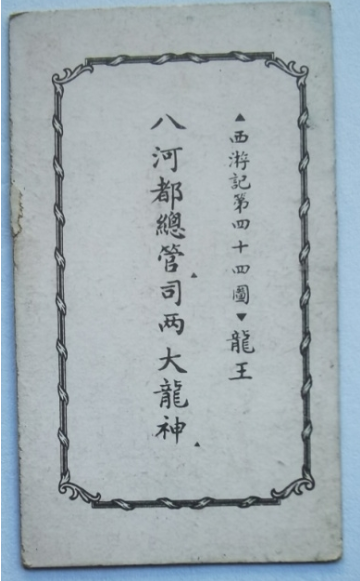 ▲西游記第四十四圖▼龍王
八河都總管司两大龍神